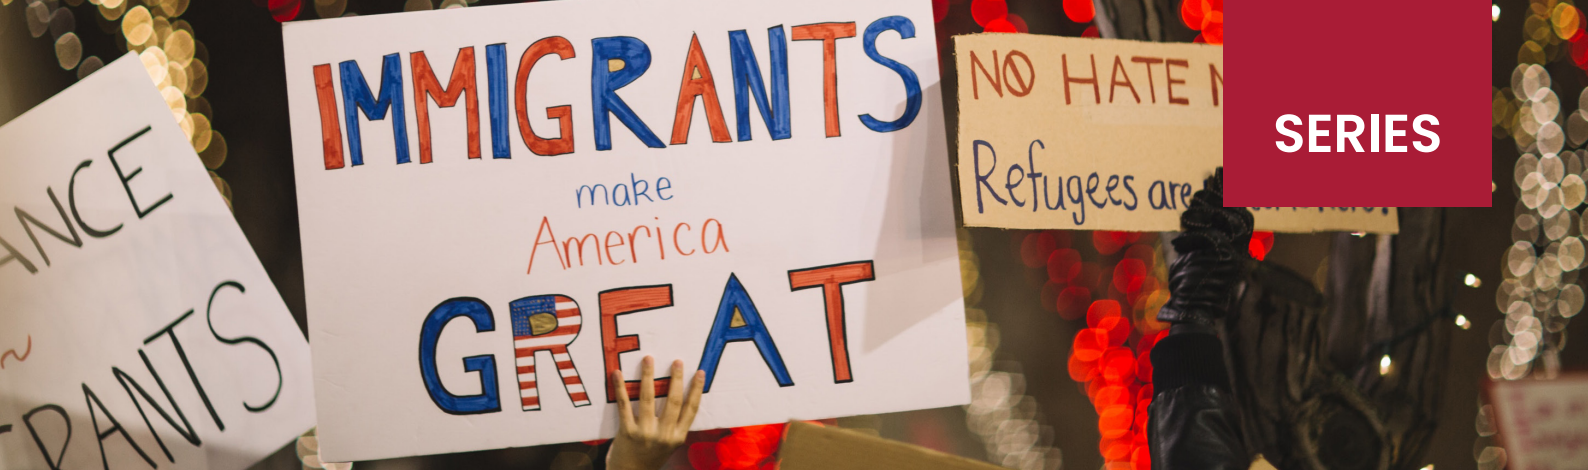 ANCE
IMMIGRANTS
make
America
GREAT
NO HATE
Refugees are
SERIES